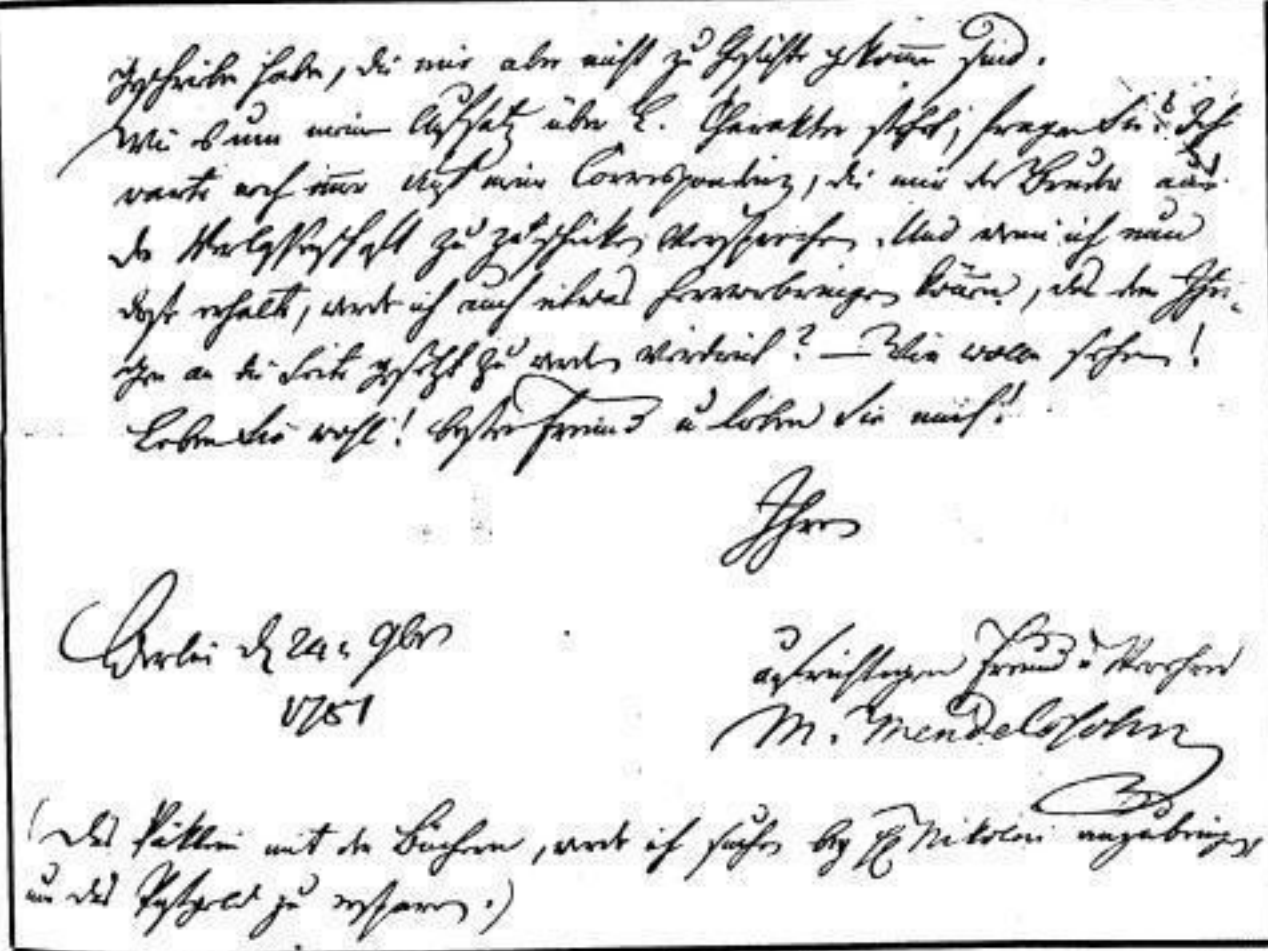 geschrieben haben, die mir aber nicht zu Gesichte gekommen sind.
Wie es um meinen Aufsatz über L. Charakter stehet; fragen Sie? Ich
warte noch immer auf meine Correspondenz, die mir der Bruder aus
der Verlassenschaft zu zu schicken versprochen. Und wenn ich nun
diese erhalte, werde ich auch etwas hervorbringen können, das dem Ihri-
gen an die Seite gesetzt zu werden verdient? — Wir wollen sehen!
Leben Sie wohl! bester Freund u lieben Sie mich!
Ihren
Berlin d 24 9br
1781
aufrichtigen Freund u Verehrer
M. Mendelssohn
(Das Päklein mit den Büchern, werde ich suchen bey H Nikolai anzubringen,
um das Postgeld zu ersparen.)